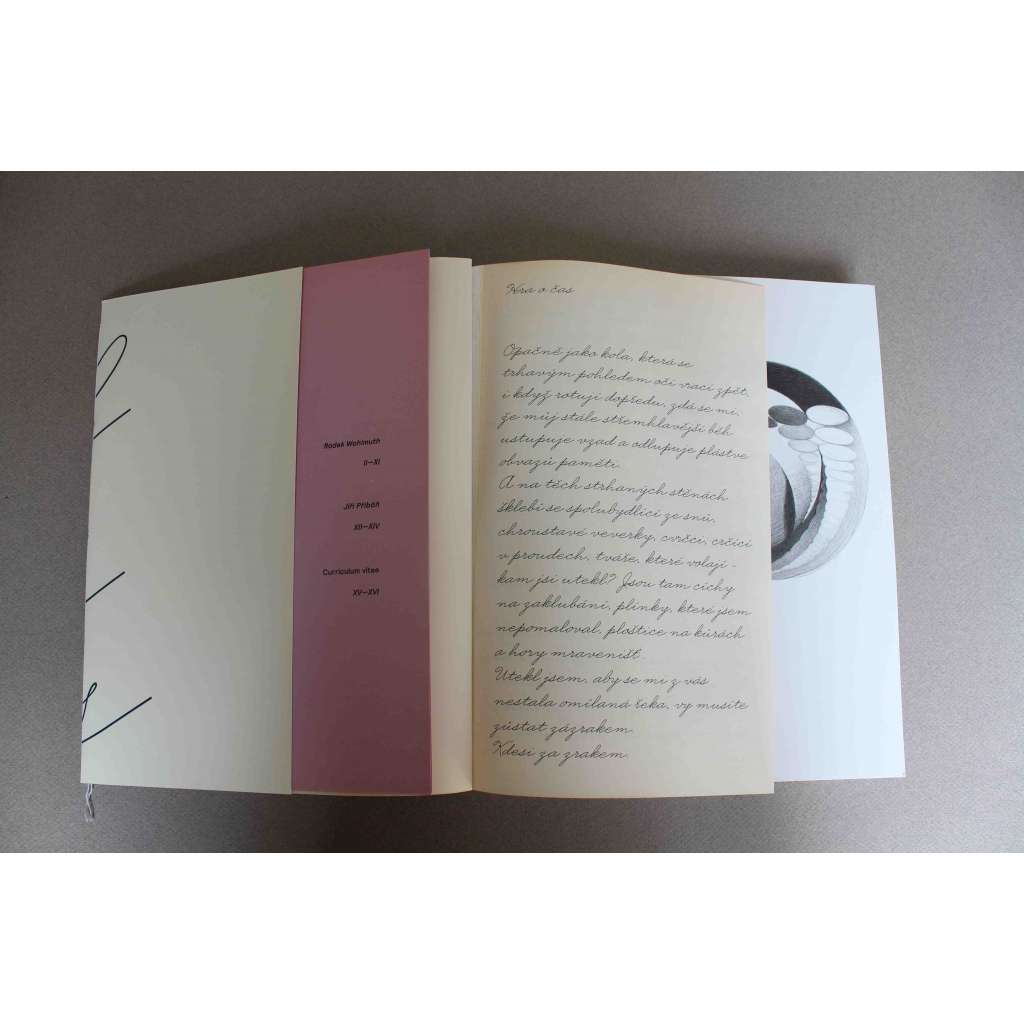 Radek Wohlmuth
II—XI
Jiří Přibáň
XII—XIV
Curriculum vitae
XV—XVI
Hra o čas
Opačně jako kola, která se
trhavým pohledem očí vrací zpět,
i když rotují dopředu, zdá se mi,
že můj stále střemhlavější běh
ustupuje vzad a odlupuje plástve
obvazů paměti.
A na těch strhaných stěnách
šklebí se spolubydlící ze snů,
chroustavé veverky, cvrčci, crčící
v proudech, tváře, které volají –
kam jsi utekl? Jsou tam cíchy
na zaklubání, plínky, které jsem
nepomaloval, ploštice na kůrách
a hory mravenišť.
Utekl jsem, aby se mi z vás
nestala omílaná řeka, vy musíte
zůstat zázrakem.
Kdesi za zrakem.